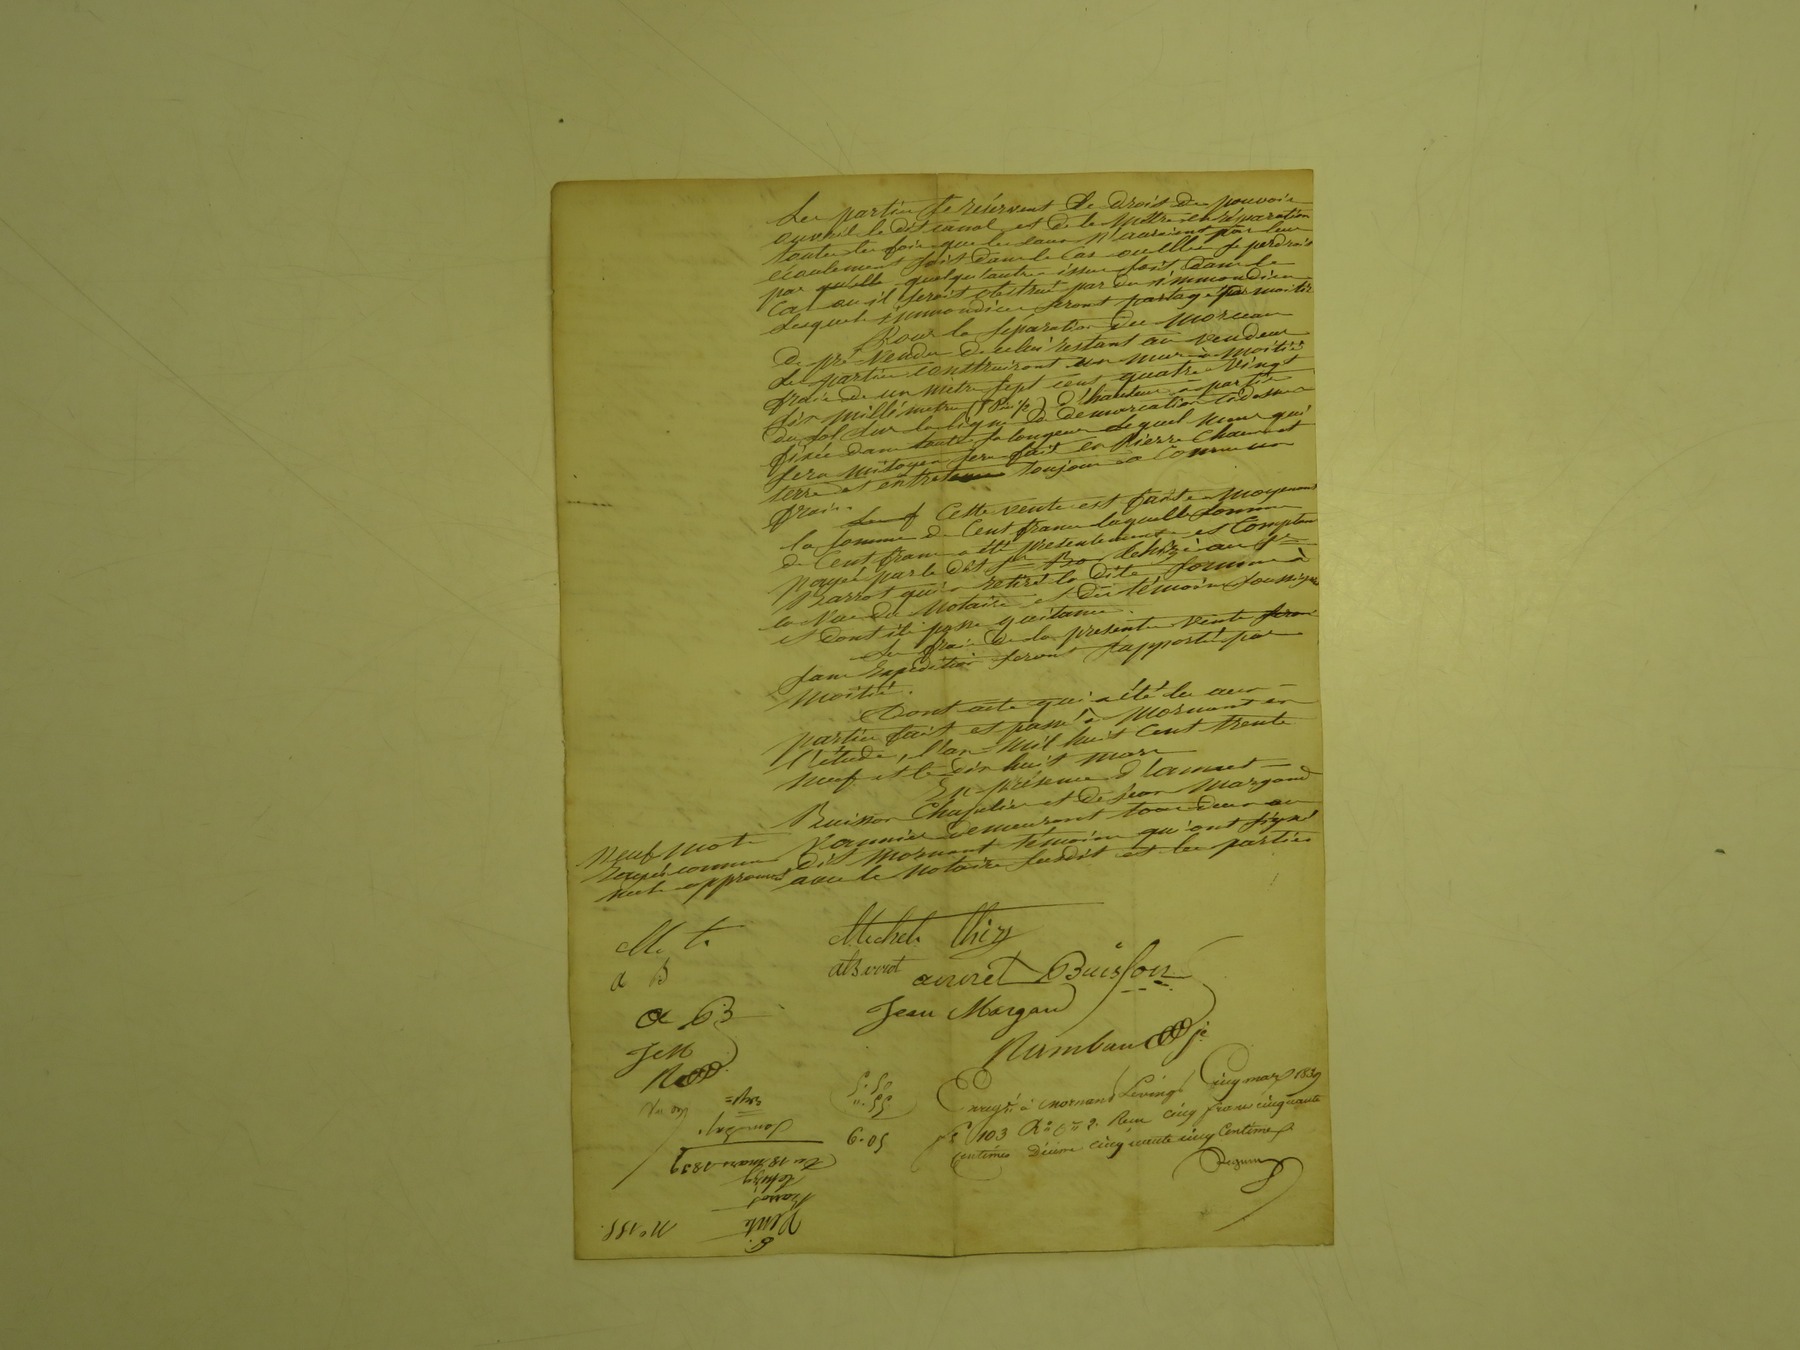 Les parties se réservent le droit de pouvoir
ouvrir le dit canal et de le mettre en réparation
toutes les fois que les eaux n'auraient pas leur
écoulement soit dans le cas ou elles se perdrais
par quelque autre issue soit dans le
cas ou il serait obstrué par des immondices
lesquels immondices seront partagé par moitié
Pour la séparation du morceau
de pré vendu de celui restant au vendeur
les parties construiront un mur à moitiés
frais de un mètre sept cent quatre vingt
dix millimètres d'hauteur à partir
du sol sur la ligne de démarcation ci dessus
fixée dans toute sa longueur lequel mur qui
sera mitoyen sera fait en pierre chaux et
terre et entretenu toujours a commun
frais.
Cette vente est faite moyennant
la somme de Cent francs laquelle somme
de Cent francs a été présentement et comptan
payé par le dit au
Barrot qui a retiré la dite somme à
la vue du Notaire et des témoins soussignés
et dont il passe quitance.
Les frais de la présente vente
sans Expédition seront supporté par
moitié.
Dont acte qui a été lu aux
parties fait et passé à Mornant en
l'étude, l'an mil huit cent trente
neuf et le dix huit mars
En présence d'annet
Buisson Chapelier et de jean Margand
demeurant tous deux au
dit Mornant témoins qui ont signé
avec le Notaire susdit et les parties
Neuf mots
rayés comme
nuls approuvés
M. t.
a B
a B
J M
Michel thizy
aBarrot
annet Buisson
Jean Margand
Rambaud
Enregé. à Mornant Le vingt cinq mars 1839
fo 103 Ro Co 2. Reçu cinq francs cinquante
centimes Dixième cinquante cinq Centimes
5. 5
55
6. 05
Du 18 mars 1839
Barrot
Vente
No 155.